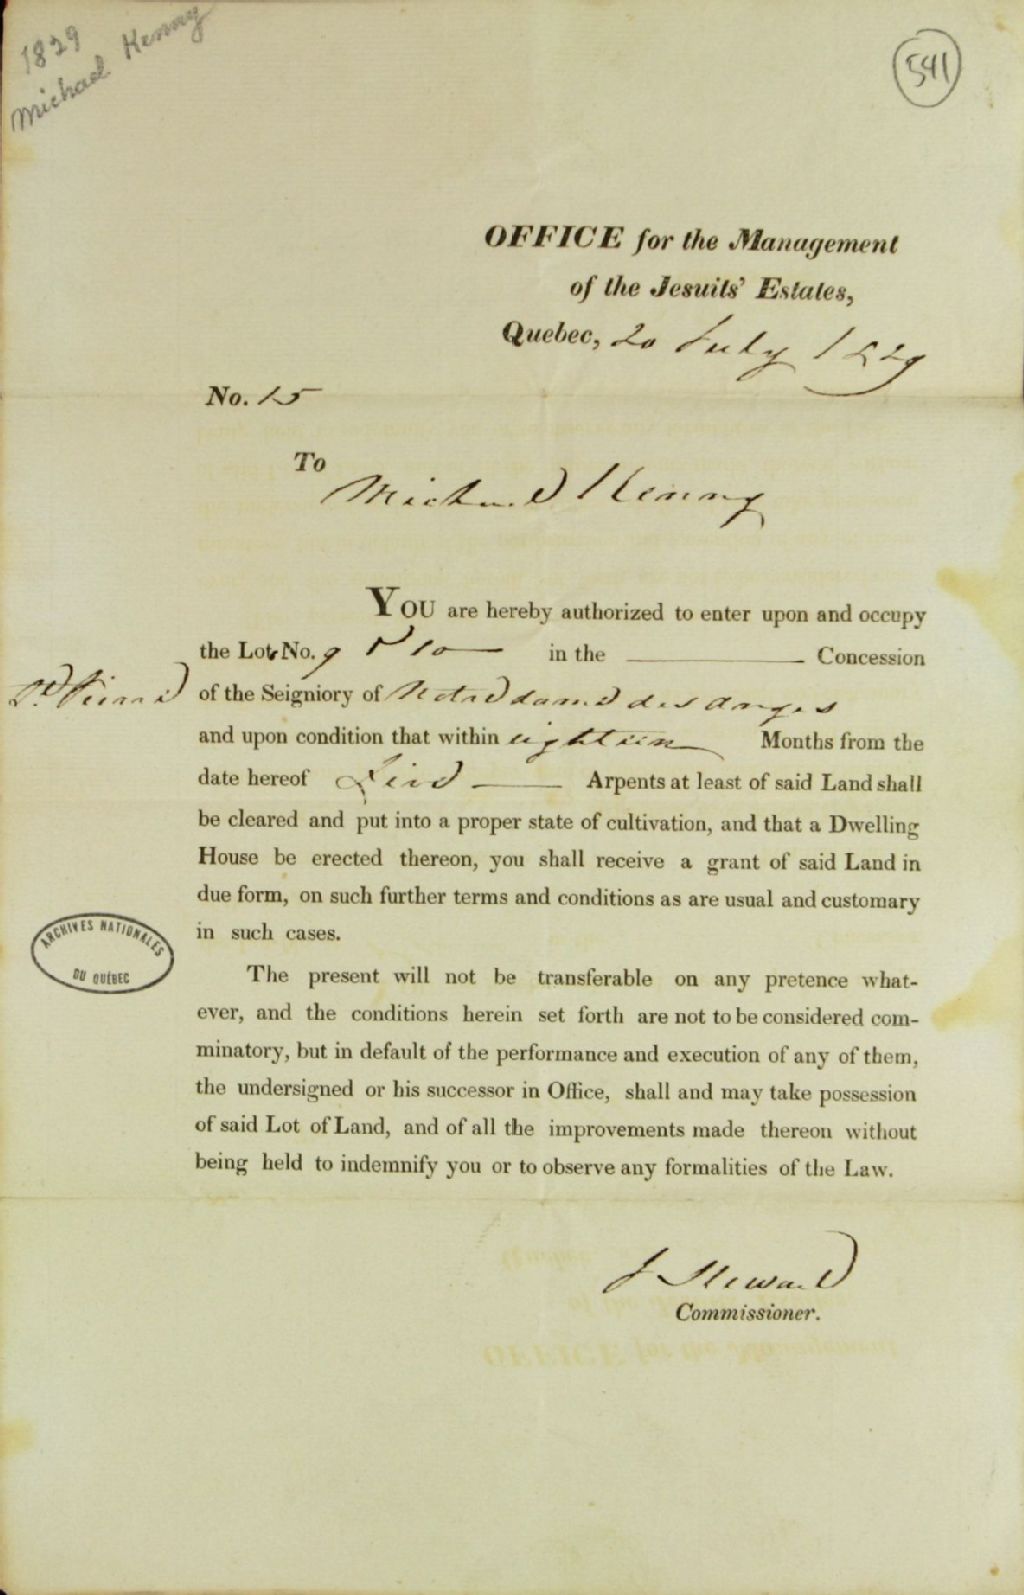 1829
Michael Kenny
541
OFFICE for the Management
of the Jesuits' Estates,
Quebec, 20 July 1829
No. 15
To
Michael Kenny
YOU are hereby authorized to enter upon and occupy
the Lots No. 9 & 10 in the Concession
of the Seigniory of Notre dame des anges
and upon condition that within eighteen Months from the
date hereof Arpents at least of said Land shall
be cleared and put into a proper state of cultivation, and that a Dwelling
House be erected thereon, you shall receive a grant of said Land in
due form, on such further terms and conditions as are usual and customary
in such cases.
ARCHIVES NATIONALES
DU QUÉBEC
The present will not be transferable on any pretence what-
ever, and the conditions herein set forth are not to be considered com-
minatory, but in default of the performance and execution of any of them,
the undersigned or his successor in Office, shall and may take possession
of said Lot of Land, and of all the improvements made thereon without
being held to indemnify you or to observe any formalities of the Law.
J Stewart
Commissioner.